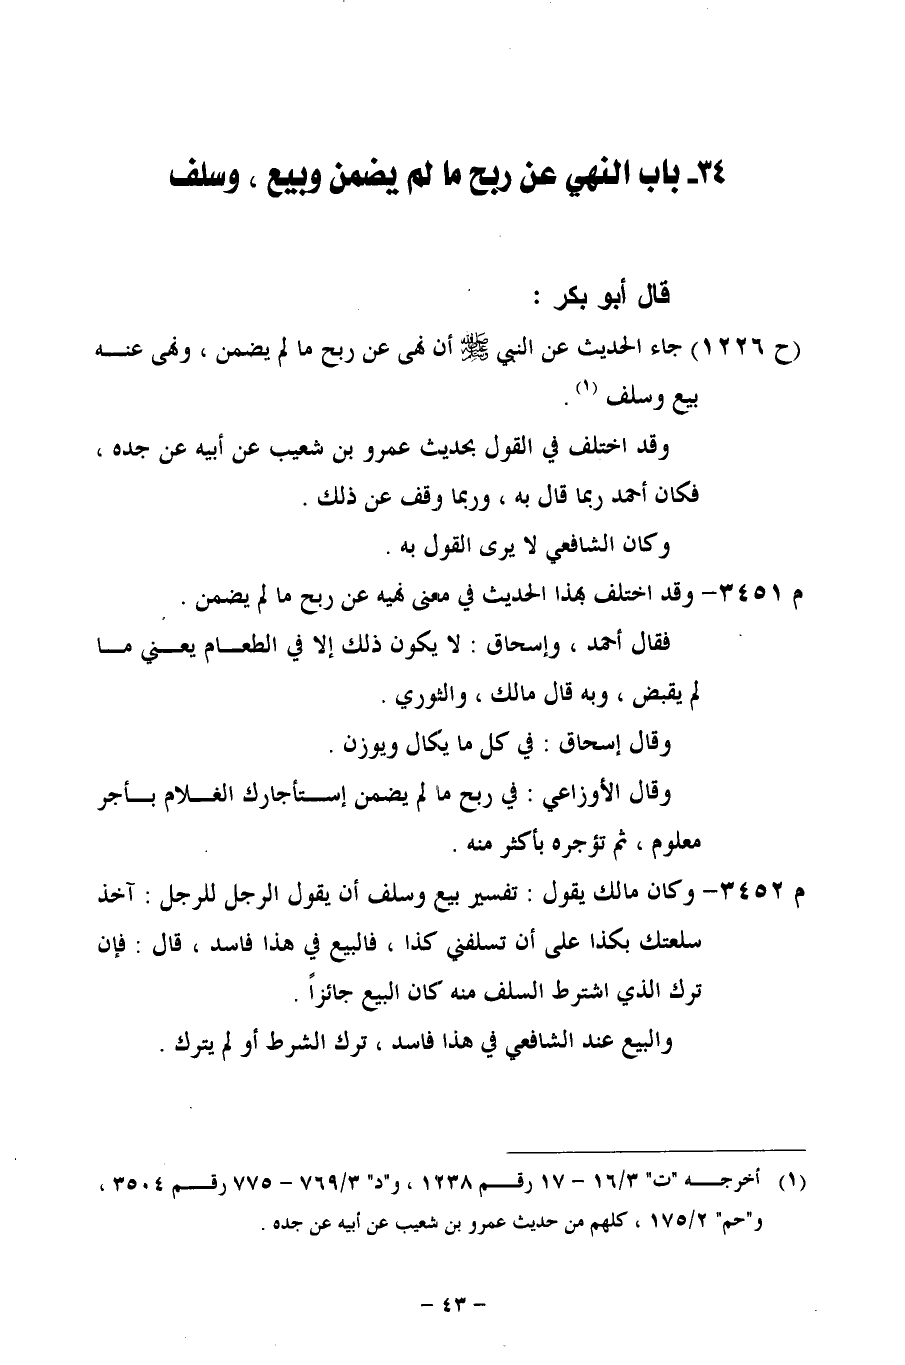 ٣٤ـ باب النهي عن ربح ما لم يضمن وبيع ، وسلف
قال أبو بكر :
(ح ١٢٢٦) جاء الحديث عن النبي ﷺ أن نهى عن ربح ما لم يضمن ، ونهى عنـــه
بيع وسلف (١) .
وقد اختلف في القول بحديث عمرو بن شعيب عن أبيه عن جده ،
فكان أحمد ربما قال به ، وربما وقف عن ذلك .
وكان الشافعي لا يرى القول به .
م ٣٤٥١– وقد اختلف بهذا الحديث في معنى نهيه عن ربح ما لم يضمن .
فقال أحمد ، وإسحاق : لا يكون ذلك إلا في الطعـــام يعـــني مـــا
لم يقبض ، وبه قال مالك ، والثوري .
وقال إسحاق : في كل ما يكال ويوزن .
وقال الأوزاعي : في ربح ما لم يضمن إســـتأجارك الغـــلام بـــأجر
معلوم ، ثم تؤجره بأكثر منه .
م ٣٤٥٢– وكان مالك يقول : تفسير بيع وسلف أن يقول الرجل للرجل : آخذ
سلعتك بكذا على أن تسلفني كذا ، فالبيع في هذا فاسد ، قال : فإن
ترك الذي اشترط السلف منه كان البيع جائزاً .
والبيع عند الشافعي في هذا فاسد ، ترك الشرط أو لم يترك .
(١) أخرجـــه "ت" ١٦/٣ – ١٧ رقـــم ١٢٣٨ ، و"د" ٧٦٩/٣ – ٧٧٥ رقـــم ٣٥٠٤ ،
و"حم" ١٧٥/٢ ، كلهم من حديث عمرو بن شعيب عن أبيه عن جده .
– ٤٣ –